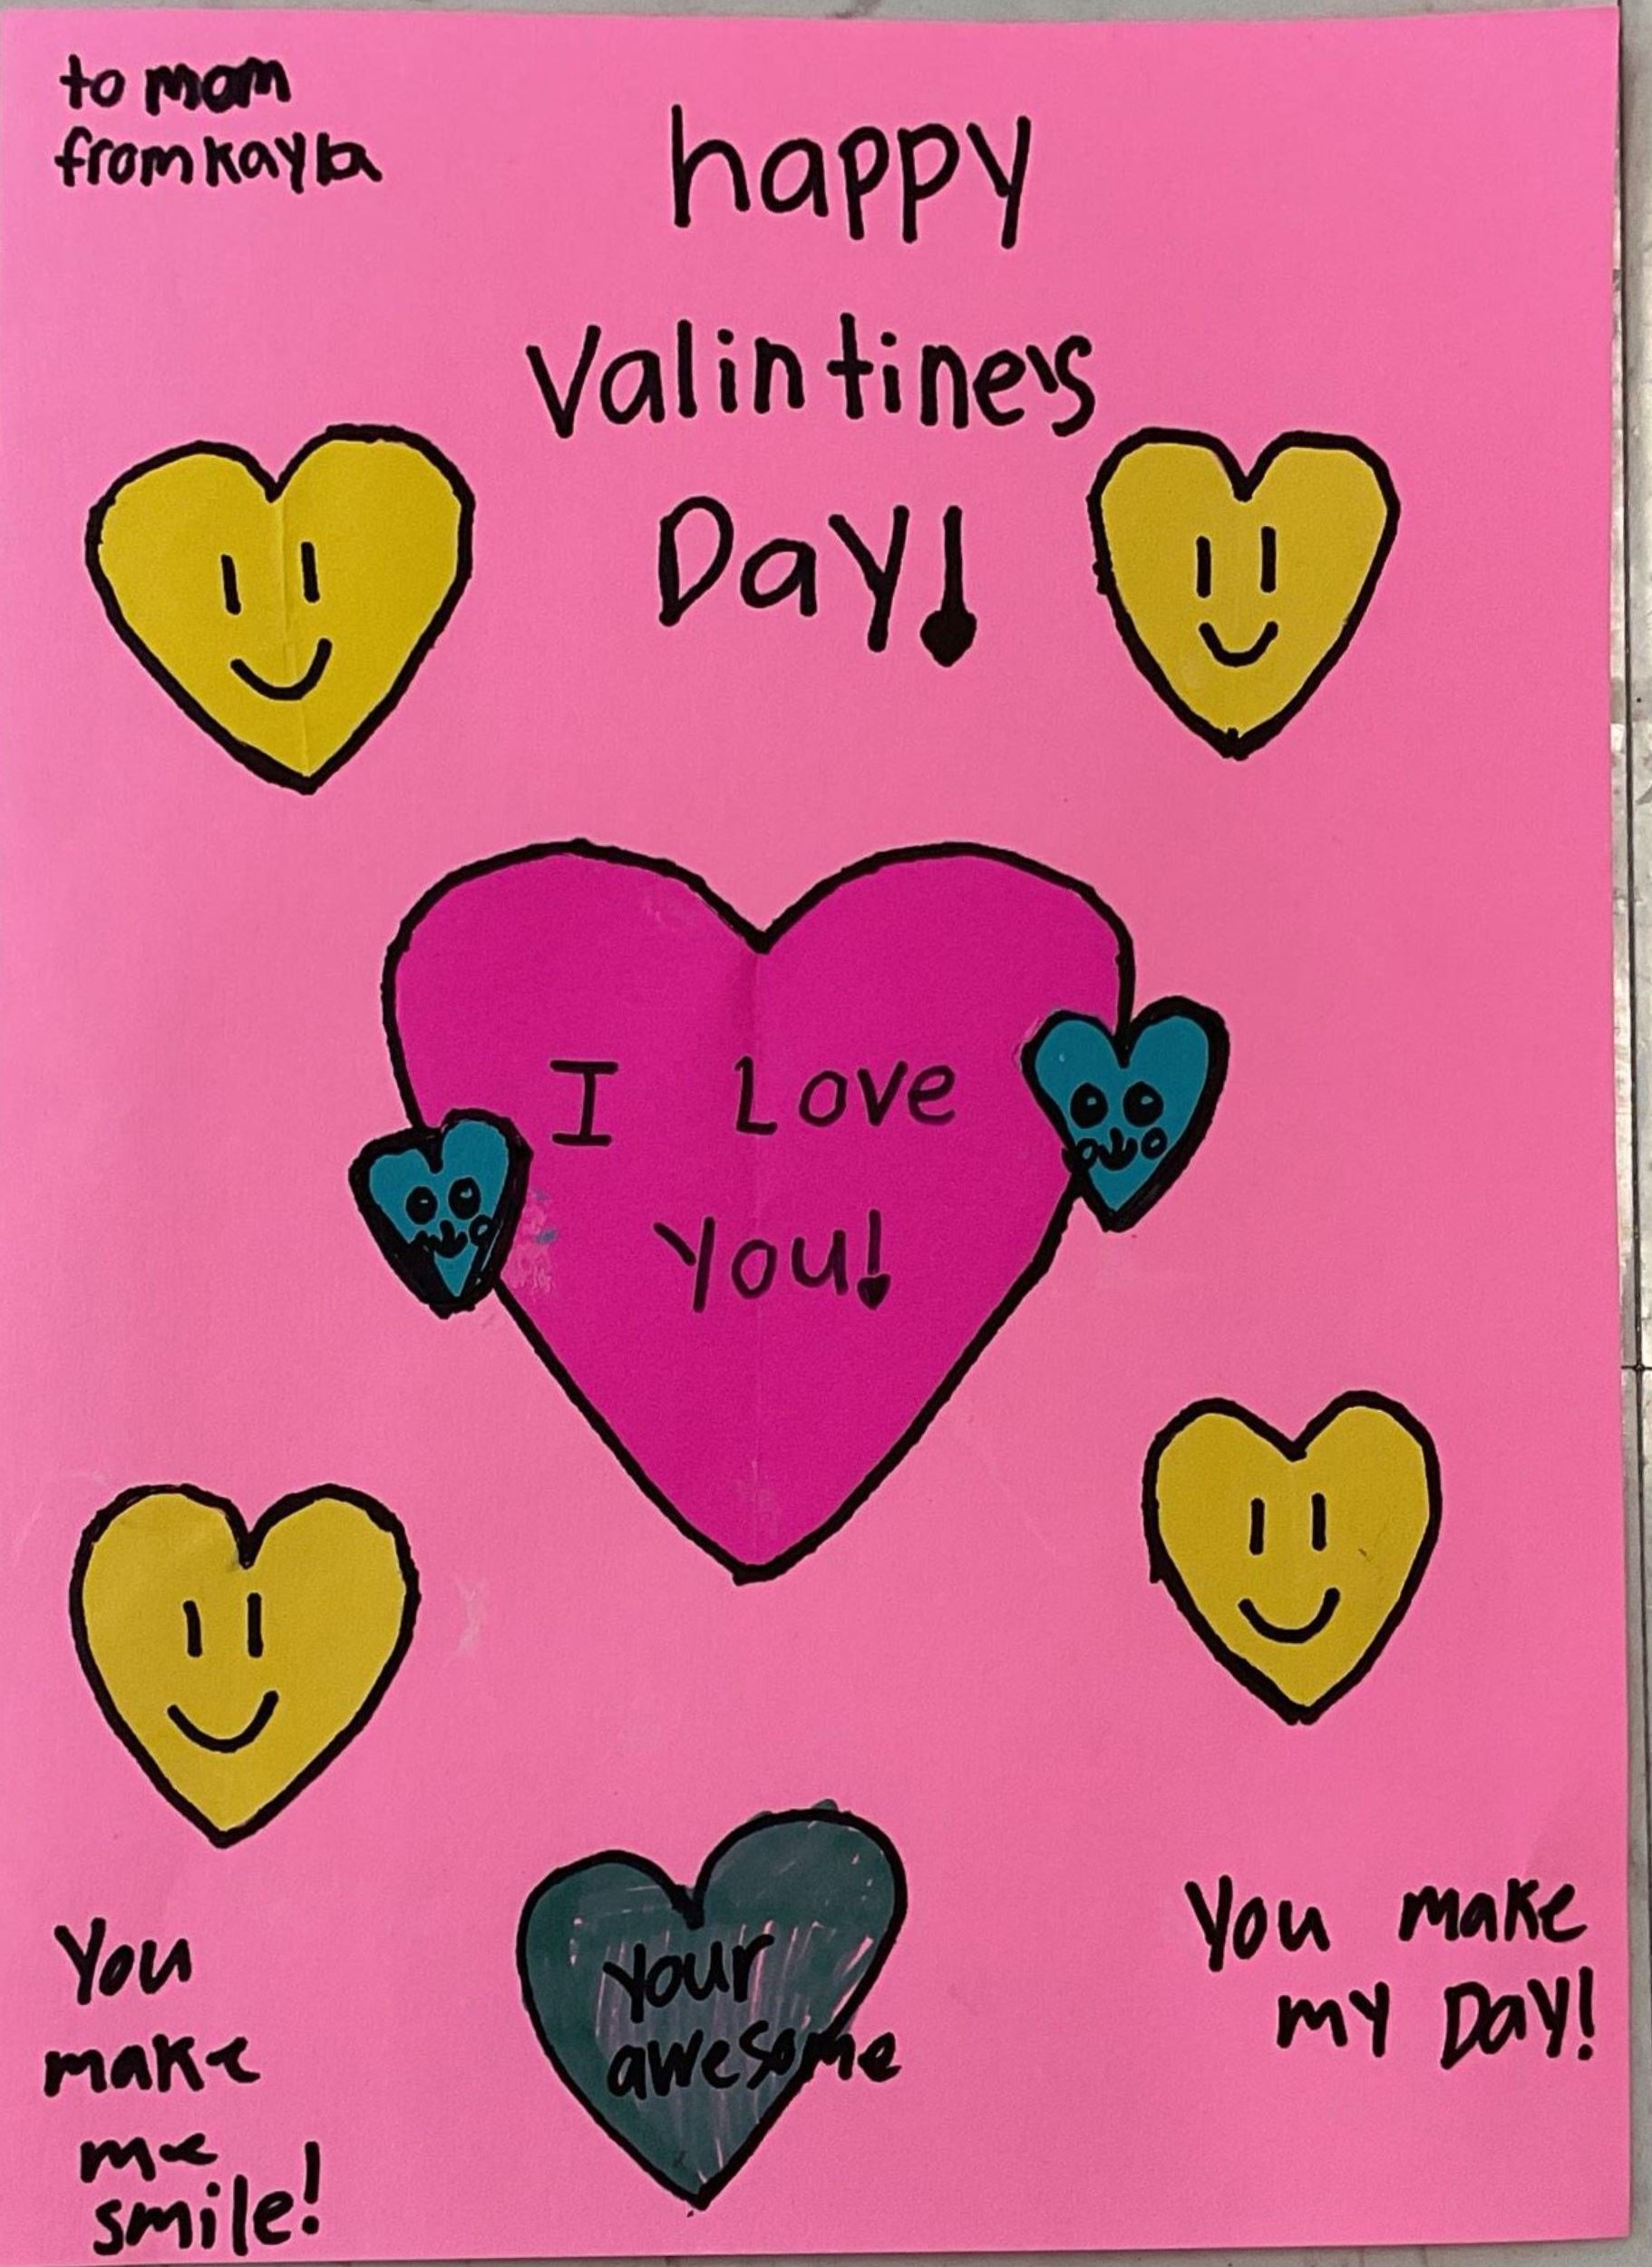 to mom
from kayla
happy
Valintine's
Day!
I Love
You!
You
make
me
smile!
your
awesome
You make
my Day!